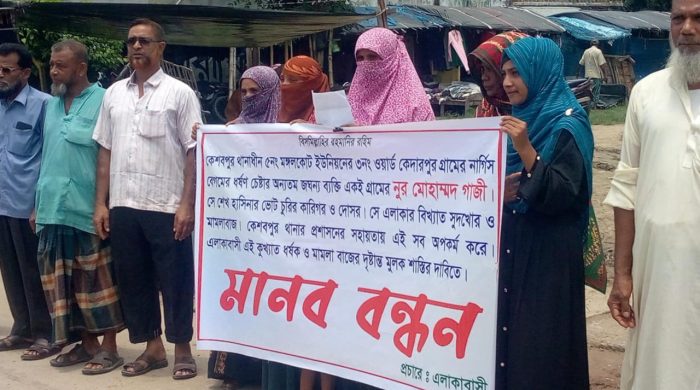 বিসমিল্লাহির রহমানির রহিম
কেশবপুর থানাধীন ৫নং মঙ্গলকোট ইউনিয়নের ৩নং ওয়ার্ড কেদারপুর গ্রামের নার্গিস
বেগমের ধর্ষণ চেষ্টার অন্যতম জঘন্য ব্যক্তি একই গ্রামের নুর মোহাম্মদ গাজী।
সে শেখ হাসিনার ভোট চুরির কারিগর ও দোসর। সে এলাকার বিখ্যাত সুদখোর ও
মামলাবাজ। কেশবপুর থানার প্রশাসনের সহায়তায় এই সব অপকর্ম করে।
এলাকাবাসী এই কুখ্যাত ধর্ষক ও মামলা বাজের দৃষ্টান্ত মুলক শাস্তির দাবিতে।
মানব বন্ধন
প্রচারে ঃ এলাকাবাসী